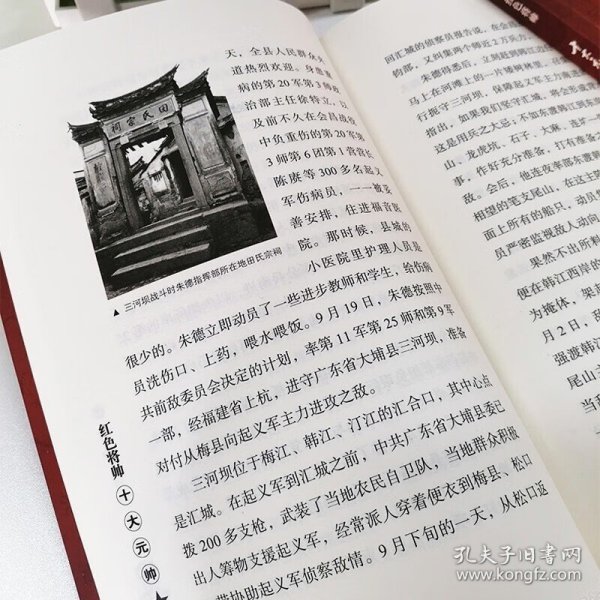 天，全县人民群众夹
道热烈欢迎。身患重
病的第20军第3师政
治部主任徐特立，以
及前不久在会昌战役
中负重伤的第20军第
3师第6团第1营营长
陈赓等300多名起义
军伤病员，一一被妥
善安排，住进福音医
院。那时候，县城的
小医院里护理人员是
田氏宗祠
▲ 三河坝战斗时朱德指挥部所在地田氏宗祠
很少的。朱德立即动员了一些进步教师和学生，给伤病
员洗伤口、上药，喂水喂饭。9月19日，朱德按照中
共前敌委员会决定的计划，率第11军第25师和第9军
一部，经福建省上杭，进守广东省大埔县三河坝，准备
对付从梅县向起义军主力进攻之敌。
三河坝位于梅江、韩江、汀江的汇合口，其中心点
是汇城。在起义军到汇城之前，中共广东省大埔县委已
拨200多支枪，武装了当地农民自卫队，当地群众积极
出人筹物支援起义军，经常派人穿着便衣到梅县、松口
带协助起义军侦察敌情。9月下旬的一天，从松口返
红色将帅
十大元帅
回汇城的侦察员报告说，在会
钧部，又纠集两个师近2万兵力，
朱德得悉后，立即赶到
马上在河滩上的一片
行扼守三河坝，保障起义军主力南
指出，如果我们坚守汇城，将会形成
这是用兵之大忌；不如东渡韩江到东
山、龙虎坑、石子、大麻、连
事，作好充分准备，打有准备之
敌。会后，他连夜率部东渡韩
相望的笔支尾山，在这主阵
面上所有的船只，动员
员严密监视敌人动向
果然不出所料
便在韩江西岸的
为掩体，架
月2日，敌
强渡韩江
尾山
孔夫子旧书网
www.kongfz.com